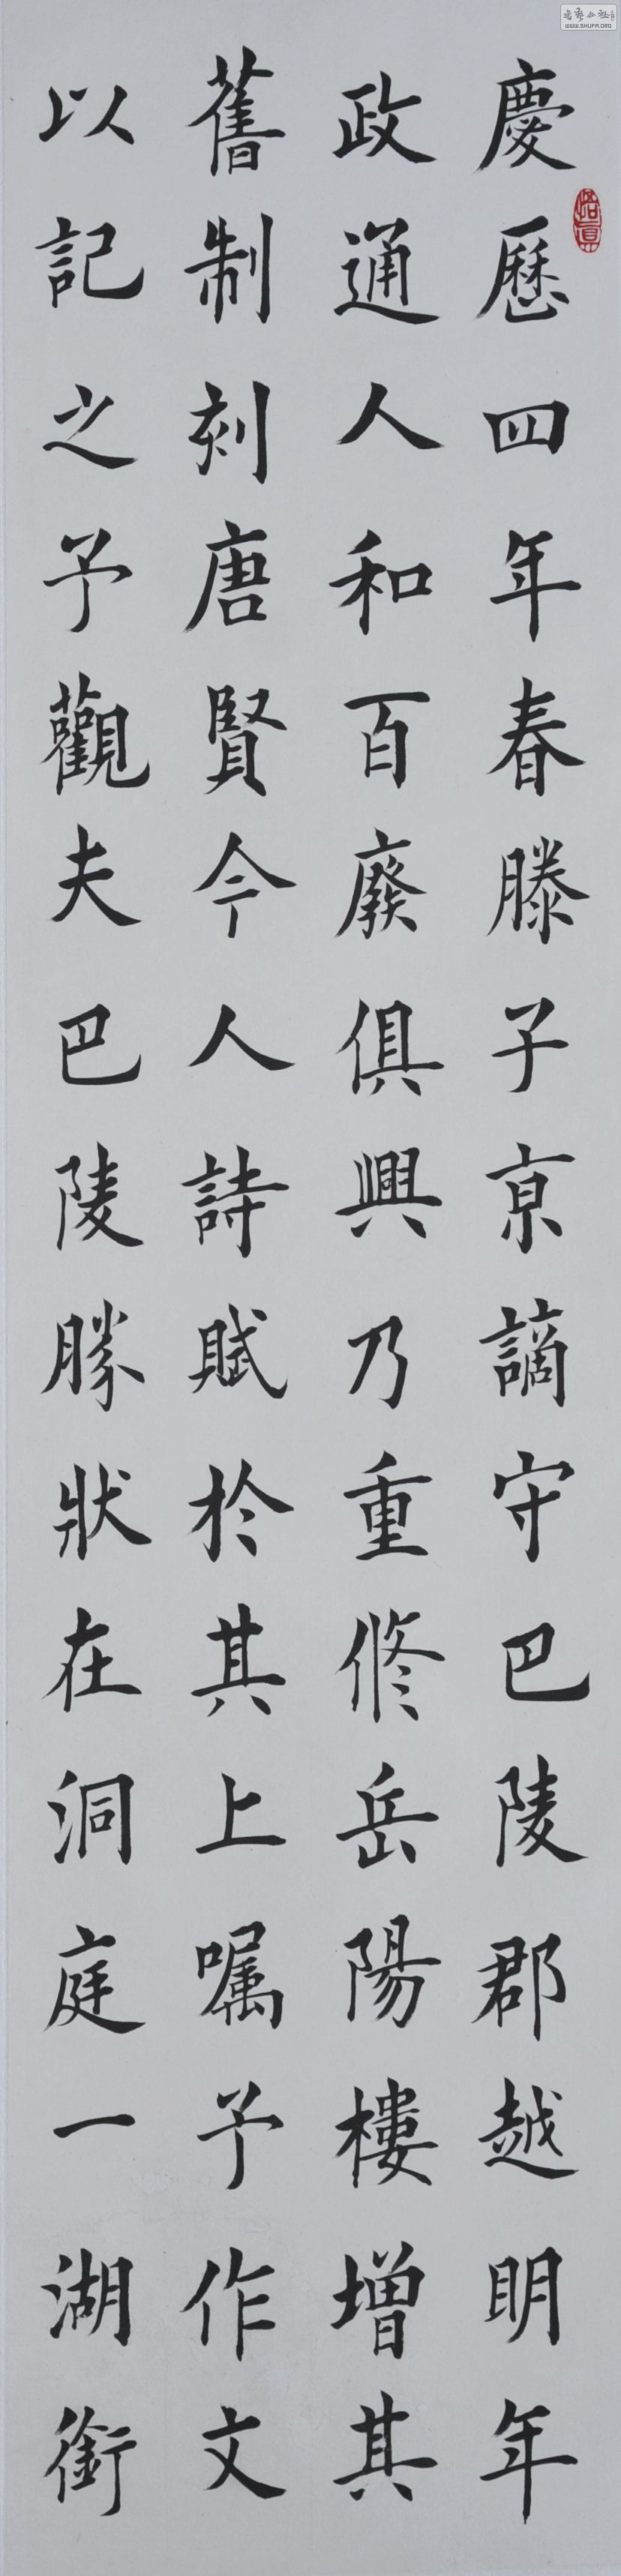 慶歷四年春滕子京謫守巴陵郡越明年
政通人和百廢俱興乃重修岳陽樓增其
舊制刻唐賢今人詩賦於其上嘱予作文
以記之予觀夫巴陵勝狀在洞庭一湖銜
WWW.SHUFA.ORG